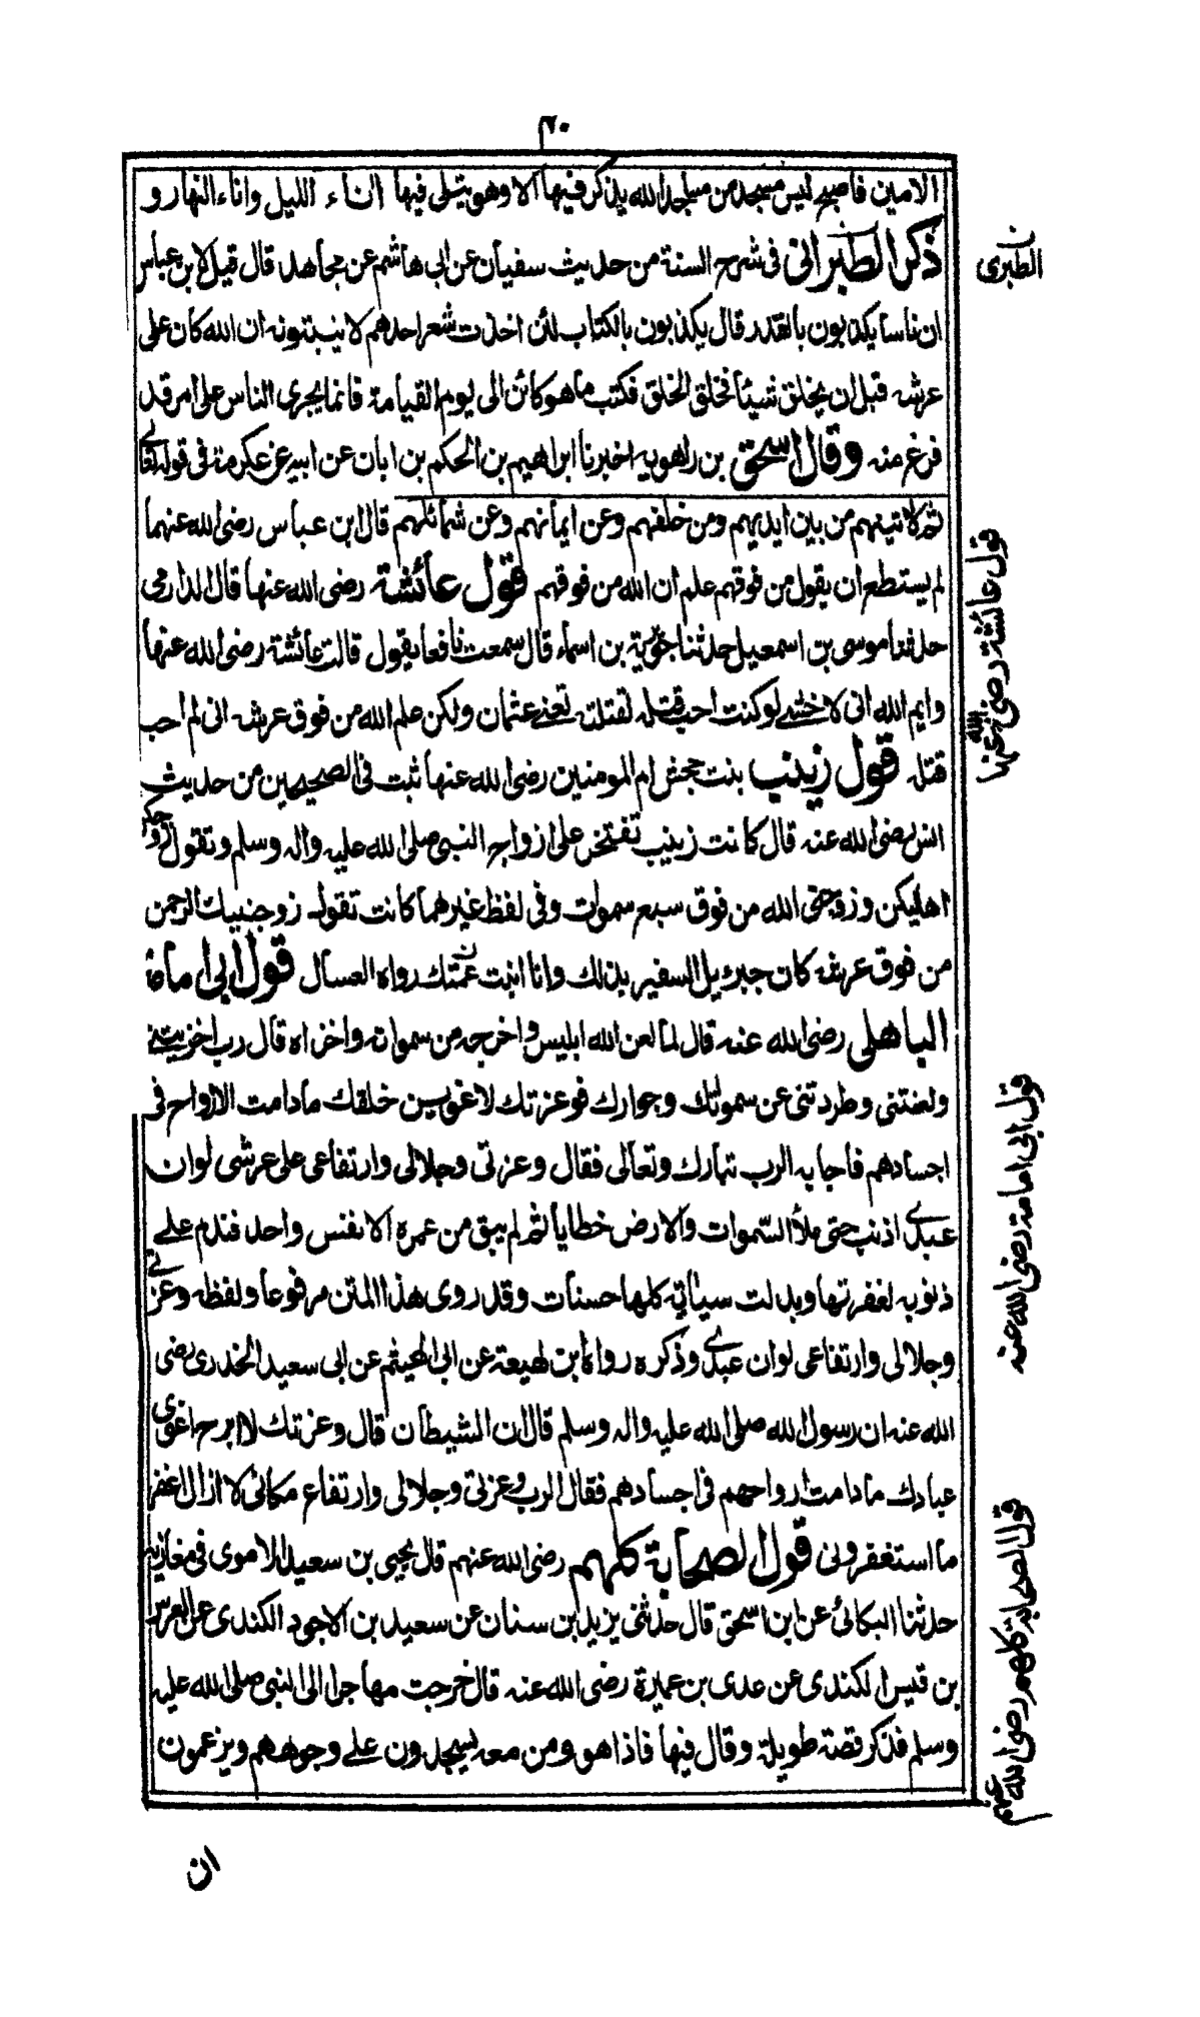 ٤٠
الامين فاصبح ليس مسجد من مساجد الله يذكر فيها الا وهو يتلى فيها اناء الليل واناء النهار و
ذكر الطبرانى فى شرح السنة من حديث سفيان عن ابى هاشم عن مجاهد قال قيل لابن عباس
ان ناسا يكذبون بالقدر قال يكذبون بالكتاب لئن اخذت شعر احدهم لا ينبتونه ان الله كان على
عرشه قبل ان يخلق شيئا فخلق الخلق فكتب ما هو كائن الى يوم القيامة فانما يجرى الناس على امر قد
فرغ منه وقال اسحق بن راهويه اخبرنا ابراهيم بن الحكم بن ابان عن ابيه عن عكرمة فى قوله تعالى
ثم لاتينهم من بين ايديهم ومن خلفهم وعن ايمانهم وعن شمائلهم قال ابن عباس رضى الله عنهما
لم يستطع ان يقول من فوقهم علم ان الله من فوقهم قول عائشة رضى الله عنها قال الدارمى
حدثنا موسى بن اسمعيل حدثنا جويرية بن اسماء قال سمعت نافعا يقول قالت عائشة رضى الله عنها
وايم الله انى لاخشى لو كنت احب قتله لقتلته تعنى عثمان ولكن علم الله من فوق عرشه انى لم احب
قتله قول زينب بنت جحش ام المومنين رضى الله عنها ثبت فى الصحيحين من حديث
انس رضى الله عنه قال كانت زينب تفتخر على ازواج النبى صلى الله عليه واله وسلم وتقول زوجكن
اهليكن وزوجنى الله من فوق سبع سموات وفى لفظ غيرهما كانت تقول زوجنيك الرحمن
من فوق عرشه كان جبريل السفير بذلك وانا ابنت عمتك رواه العسال قول ابى امامة
الباهلى رضى الله عنه قال لما لعن الله ابليس واخرجه من سمواته واخزاه قال رب اخزيتنى
ولعنتنى وطردتنى عن سمواتك وجوارك فوعزتك لاغوين خلقك مادامت الارواح فى
اجسادهم فاجابه الرب تبارك وتعالى فقال وعزتى وجلالى وارتفاعى على عرشى لو ان
عبدى اذنب حتى ملأ السموات والارض خطايا ثم لم يبق من عمره الا نفس واحد فندم على
ذنوبه لغفرتها وبدلت سياته كلها حسنات وقد روى هذا المتن مرفوعا ولفظه وعزتى
وجلالى وارتفاعى لو ان عبدى وذكره رواه ابن لهيعة عن ابى الهيثم عن ابى سعيد الخدرى رضى
الله عنه ان رسول الله صلى الله عليه واله وسلم قال ان الشيطان قال وعزتك لا ابرح اغوى
عبادك مادامت ارواحهم فى اجسادهم فقال الرب وعزتى وجلالى وارتفاع مكانى لا ازال اغفر
ما استغفرونى قول الصحابة كلهم رضى الله عنهم قال يحيى بن سعيد الاموى فى مغازيه
حدثنا البكائى عن ابن اسحق قال حدثنى يزيد بن سنان عن سعيد بن الاجود الكندى عن العرس
بن قيس الكندى عن عدى بن عميرة رضى الله عنه قال خرجت مهاجرا الى النبى صلى الله عليه
وسلم فذكر قصة طويلة وقال فيها فاذا هو ومن معه يسجدون على وجوههم ويزعمون
ان
الطبرى ن
قول عائشة رضى الله عنها
قول ابى امامة رضى الله عنه
قول الصحابة كلهم رضى الله عنهم